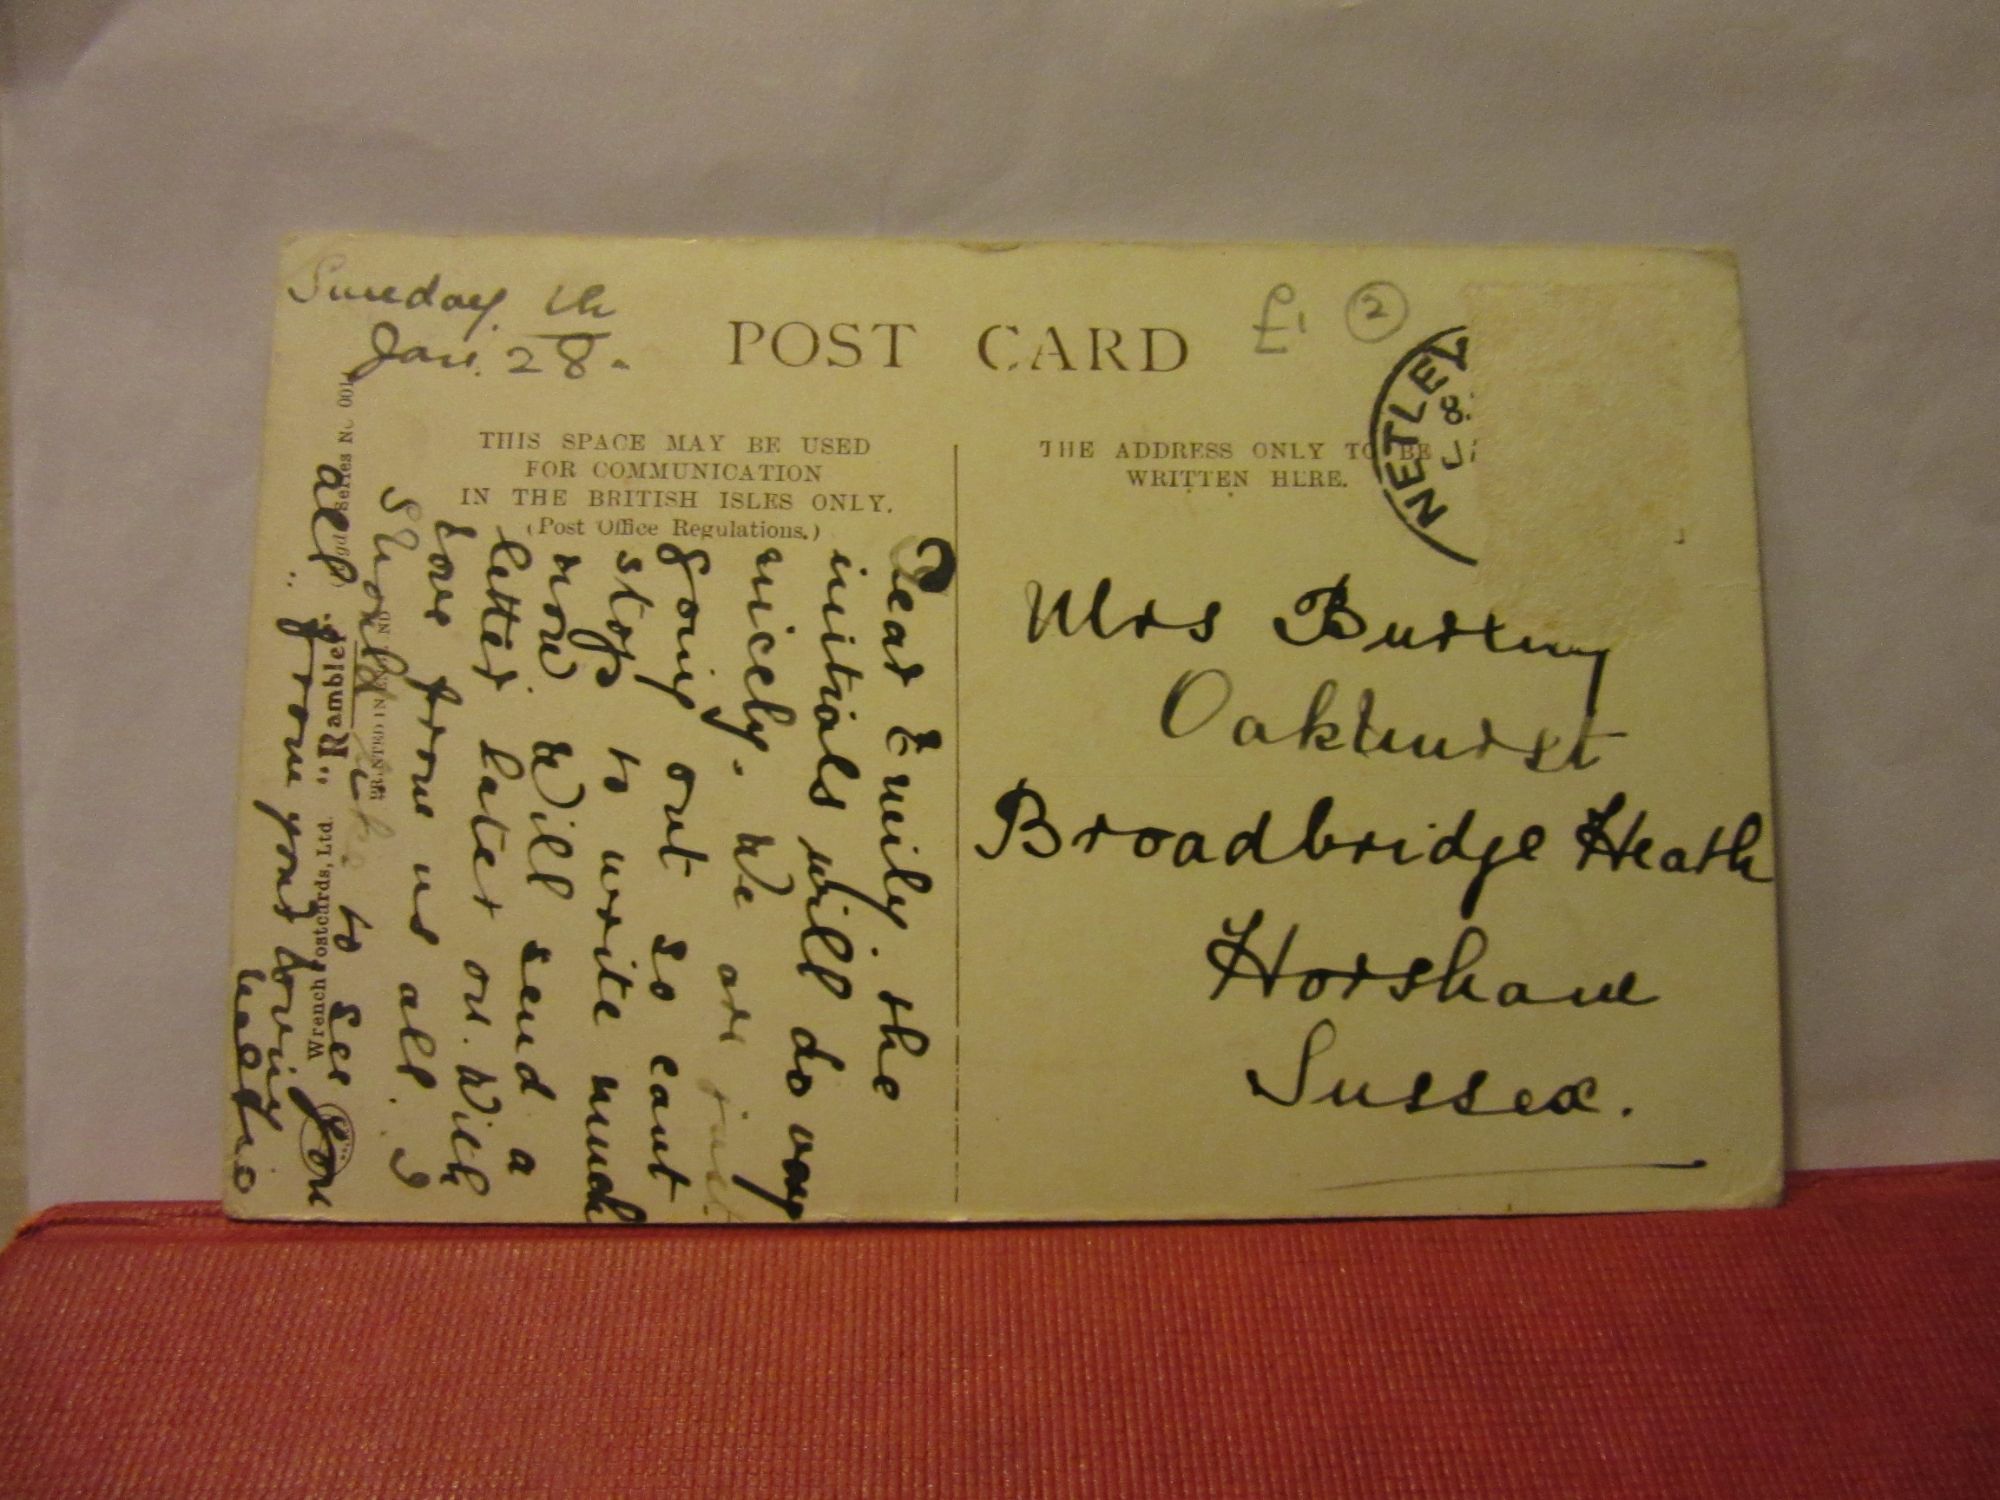 Sunday th
Jan. 28.
POST CARD
£1 2
THIS SPACE MAY BE USED
FOR COMMUNICATION
IN THE BRITISH ISLES ONLY.
(Post Office Regulations.)
THE ADDRESS ONLY TO BE
WRITTEN HERE.
NETLEY
8
Dear Emily the
initials will do very
nicely. We are just
going out so cant
stop to write much
now Will send a
letter later on. With
love from us all. I
Should like to see you
all from your loving
Mrs
Oakhurst
Broadbridge Heath
Horsham
Sussex.
Wrench Postcards, Ltd. "Rambler" Series No.
PRINTED IN